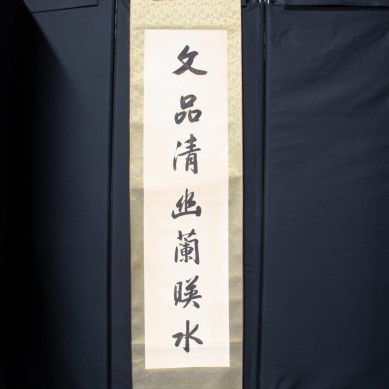 文品清幽蘭暎水